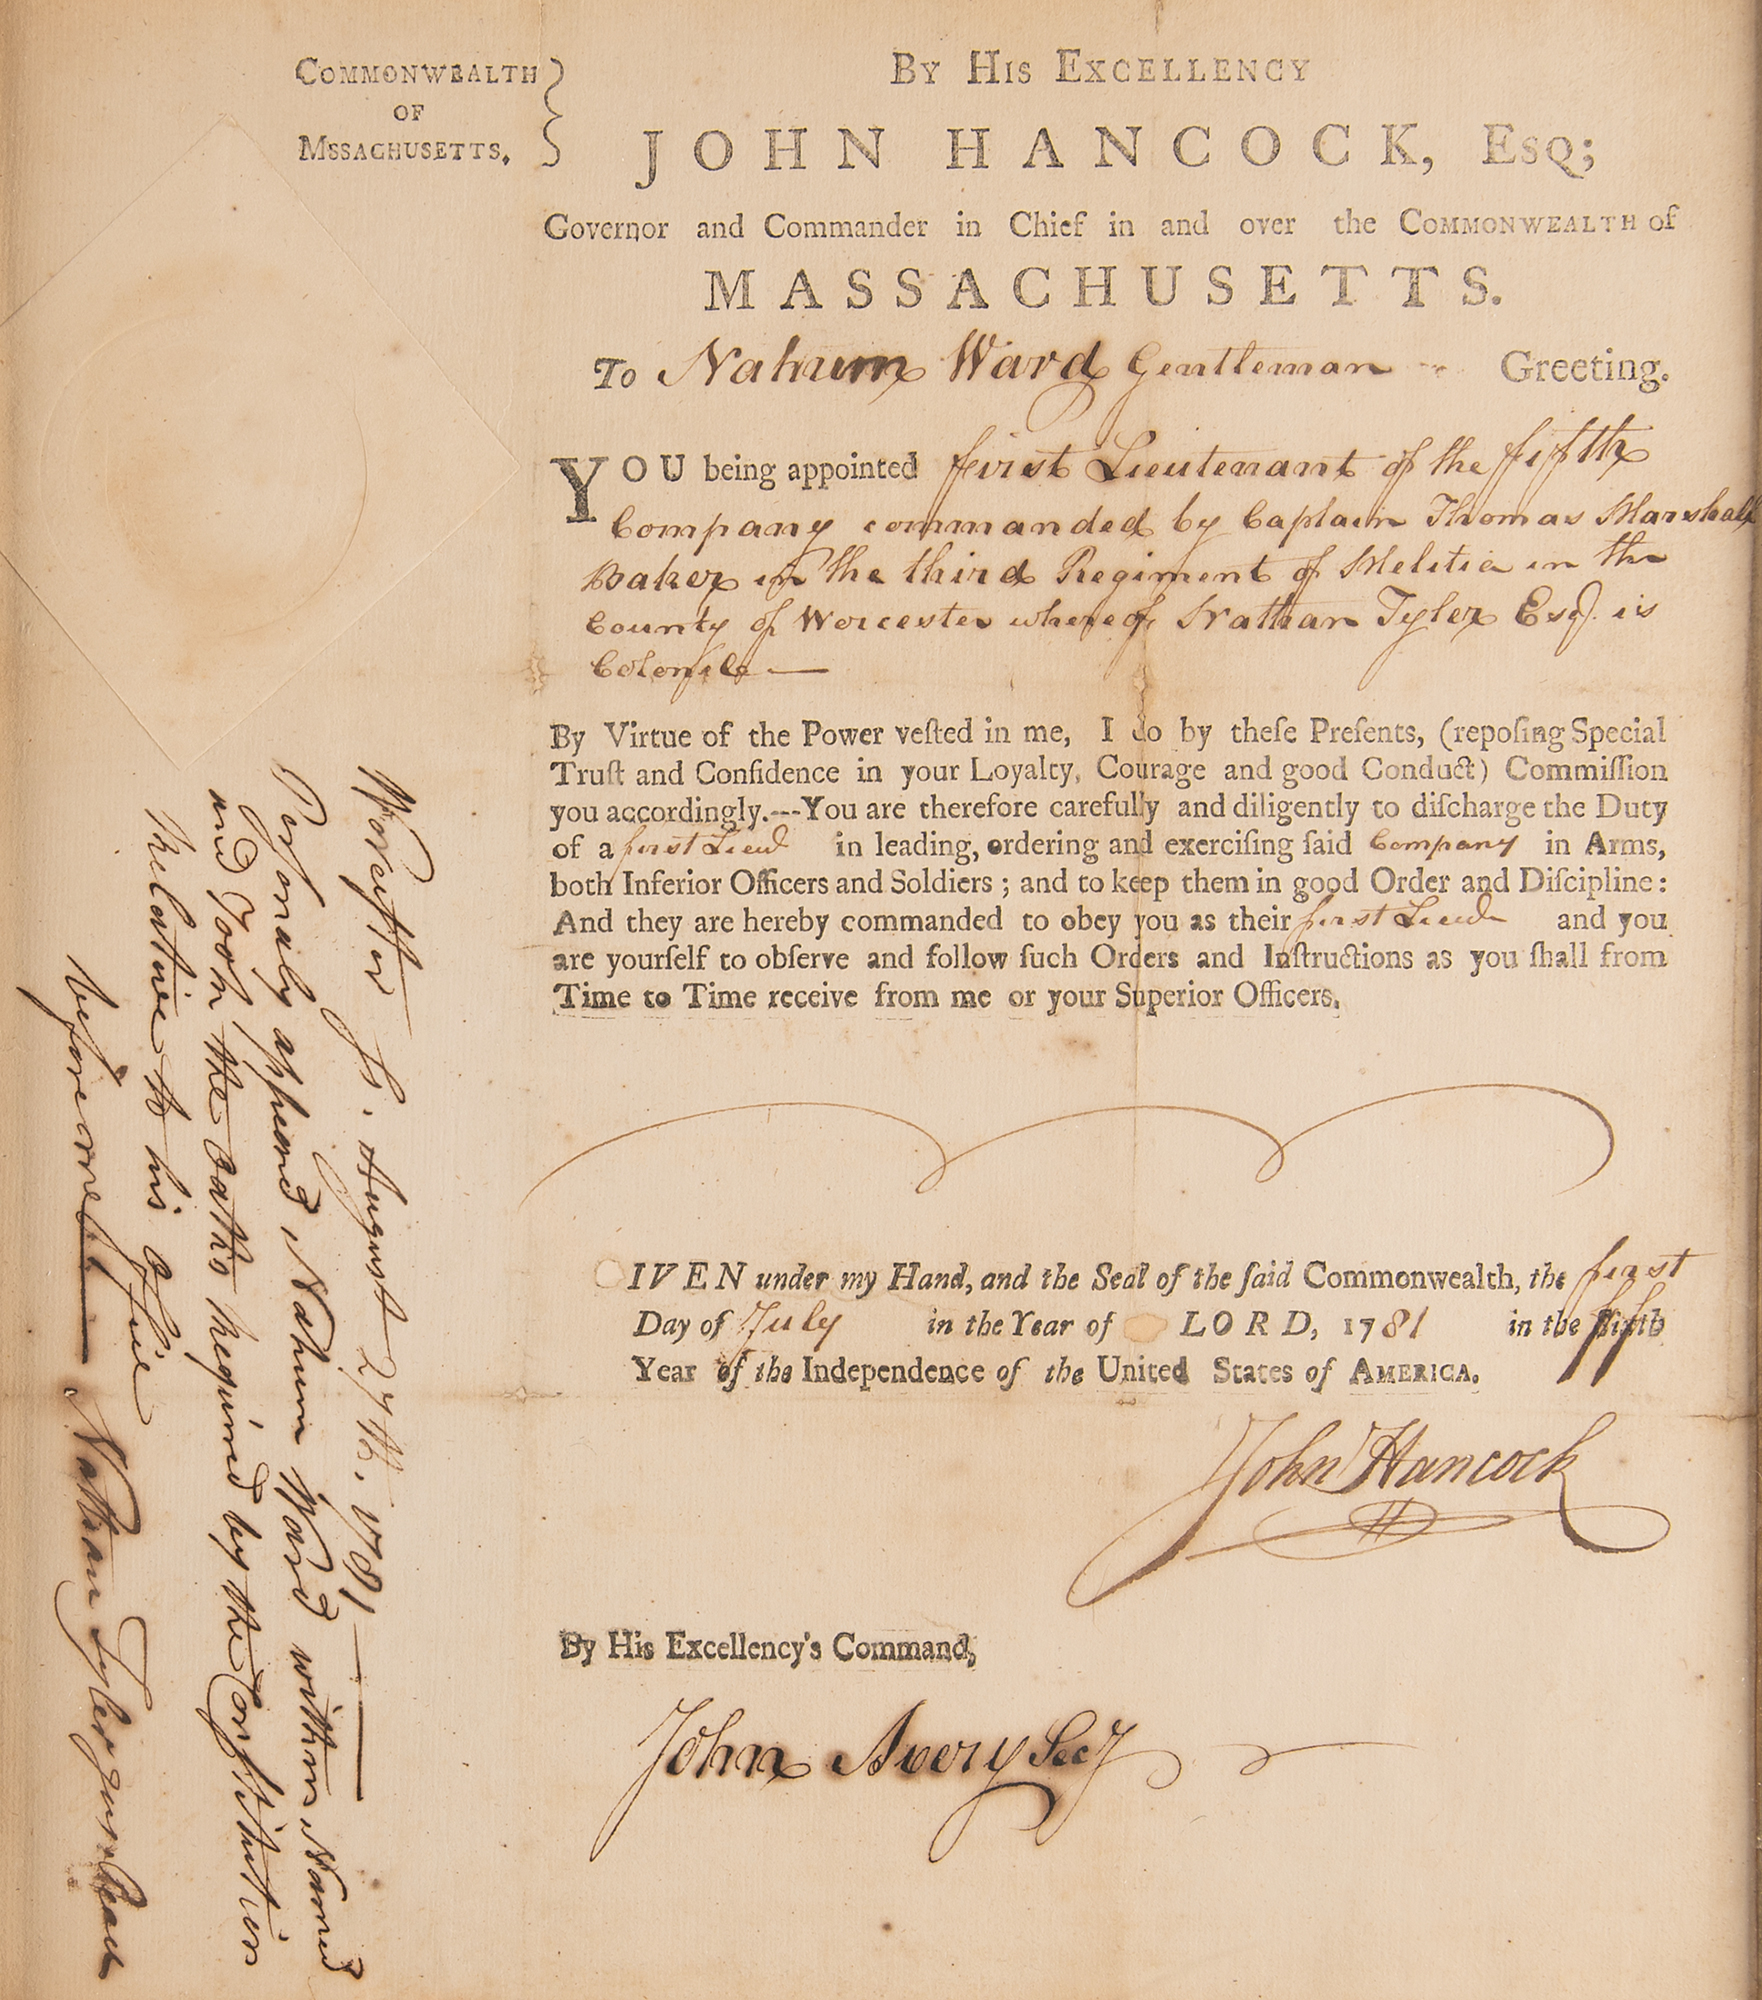 COMMONWEALTH
OF
MSSACHUSETTS.
BY HIS EXCELLENCY
JOHN HANCOCK, ESQ;
Governor and Commander in Chief in and over the COMMONWEALTH of
MASSACHUSETTS.
To Nahum Ward Gentleman Greeting.
YOU being appointed first Lieutenant of the fifth
Company commanded by Captain Thomas Marshall
Baker in the third Regiment of Melitia in the
County of Worcester whereof Nathan Tyler Esqr. is
Colonele —
By Virtue of the Power veſted in me, I do by theſe Preſents, (repoſing Special
Truſt and Confidence in your Loyalty, Courage and good Conduct) Commiſſion
you accordingly.---You are therefore carefully and diligently to diſcharge the Duty
of a first Lieut in leading, ordering and exerciſing ſaid Company in Arms,
both Inferior Officers and Soldiers; and to keep them in good Order and Diſcipline:
And they are hereby commanded to obey you as their first Lieut and you
are yourſelf to obſerve and follow ſuch Orders and Inſtructions as you ſhall from
Time to Time receive from me or your Superior Officers.
IVEN under my Hand, and the Seal of the ſaid Commonwealth, the first
Day of July in the Year of LORD, 1781 in the
Year of the Independence of the United States of AMERICA.
John Hancock
By His Excellency's Command,
John Avery Secy
Worceſter Ss. August 27th. 1781 —
Perſonaly appeard Nahum Ward within Named
and Took the oaths Requird by the Conſtitution
Relative to his offiie
before me — Nathan Tyler